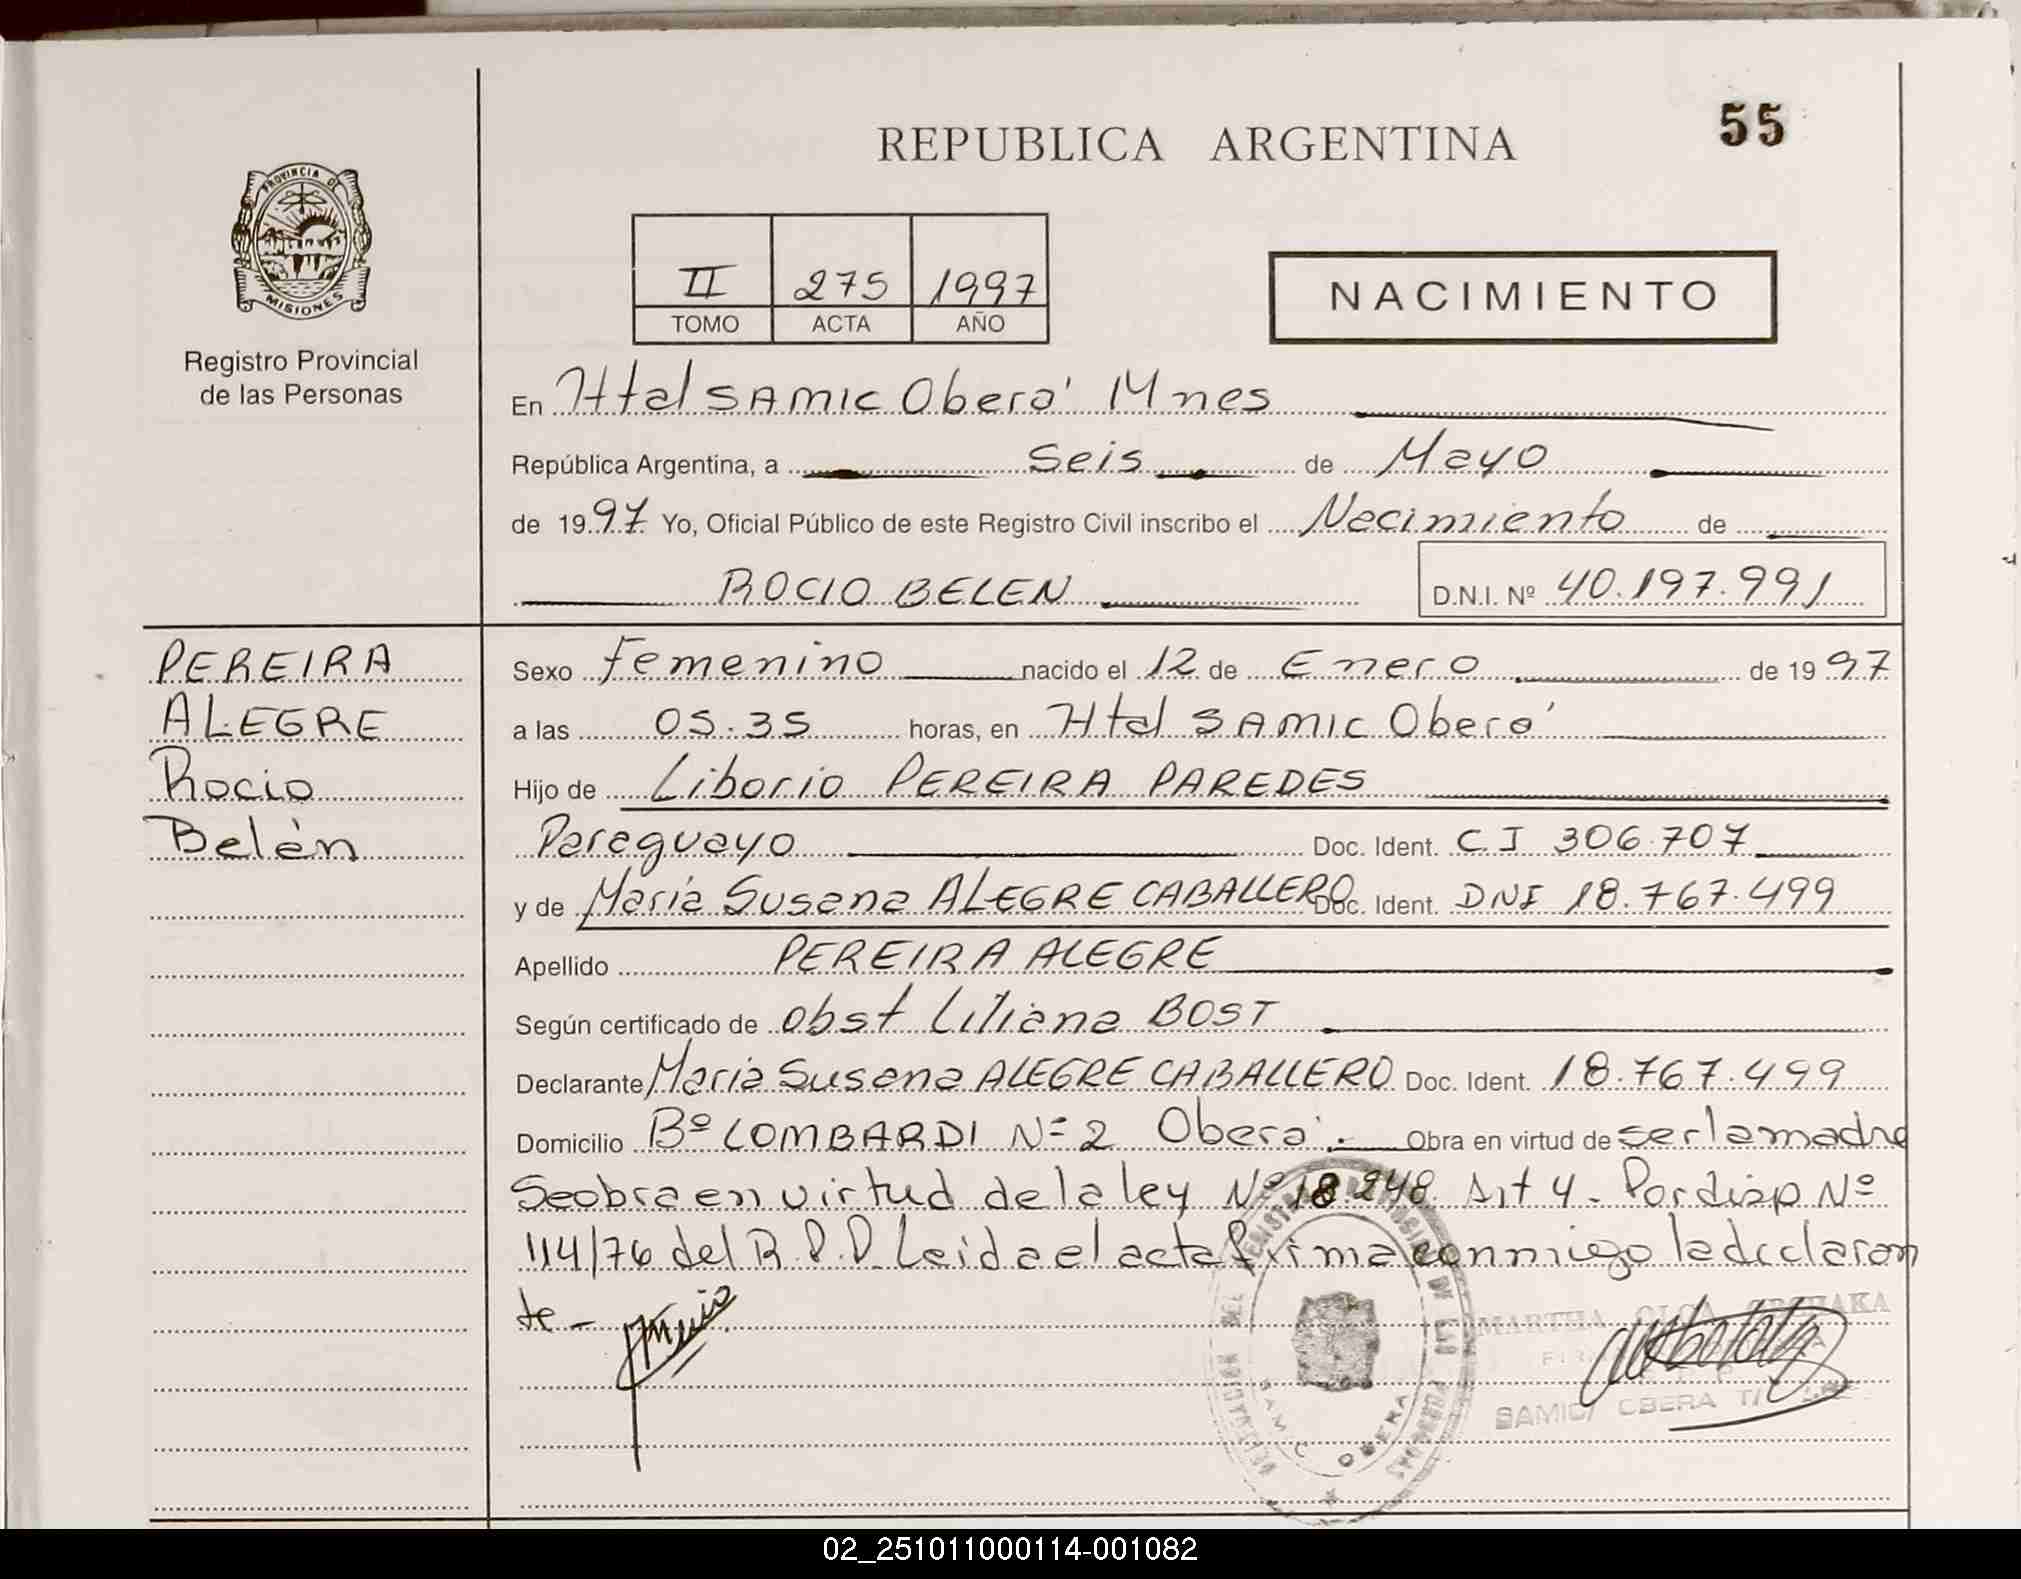 REPUBLICA ARGENTINA
55
PROVINCIA DE
MISIONES
Registro Provincial
de las Personas
II 275 1997
TOMO ACTA AÑO
NACIMIENTO
En Htal SAMIC Oberá Mnes
República Argentina, a Seis de Mayo
de 1997 Yo, Oficial Público de este Registro Civil inscribo el Nacimiento de
ROCIO BELEN
D.N.I. Nº 40.197.991
PEREIRA
ALEGRE
Rocio
Belén
Sexo Femenino nacido el 12 de Enero de 1997
a las 05.35 horas, en Htal SAMIC Oberá
Hijo de Liborio PEREIRA PAREDES
Paraguayo Doc. Ident. CI 306.707
y de María Susana ALEGRE CABALLERO Doc. Ident. DNI 18.767.499
Apellido PEREIRA ALEGRE
Según certificado de obst Liliana BOST
Declarante María Susana ALEGRE CABALLERO Doc. Ident. 18.767.499
Domicilio Bº LOMBARDI Nº 2 Oberá. Obra en virtud de ser la madre
Se obra en virtud de la ley Nº 18.248 Art 4 - Por disp Nº
114/76 del R.P.P. Leida el acta firma conmigo la declaran
te -
MARTHA OLGA
SAMIC OBERA
SAMIC OBERA
02_251011000114-001082